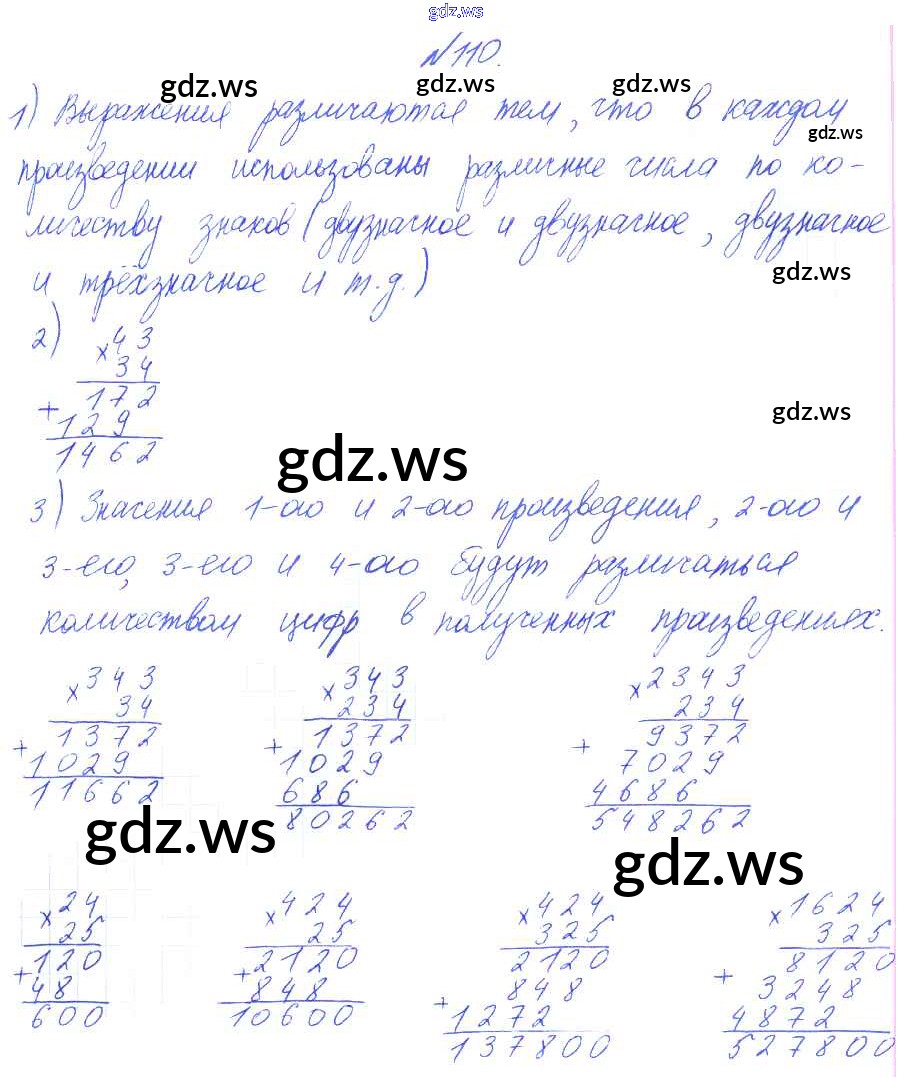 gdz.ws
№110.
gdz.ws gdz.ws gdz.ws
1) Выражения различаются тем, что в каждом
gdz.ws
произведении использованы различные числа по ко-
личеству знаков (двузначное и двузначное, двузначное
и трёхзначное и т.д.)
gdz.ws gdz.ws
2) × 43
34
172
+
129
1462
gdz.ws
gdz.ws
3) Значения 1-ого и 2-ого произведения, 2-ого и
3-его, 3-его и 4-ого будут различаться
количеством цифр в полученных произведениях.
× 343 × 343 × 2343
34 234 234
+ 1372 + 1372 + 9372
1029 1029 7029
11662 686 4686
80262 548262
gdz.ws
gdz.ws
× 24 × 424 × 424 × 1624
25 25 325 325
+ 120 + 2120 2120 8120
48 848 + 848 + 3248
600 10600 1272 4872
137800 527800